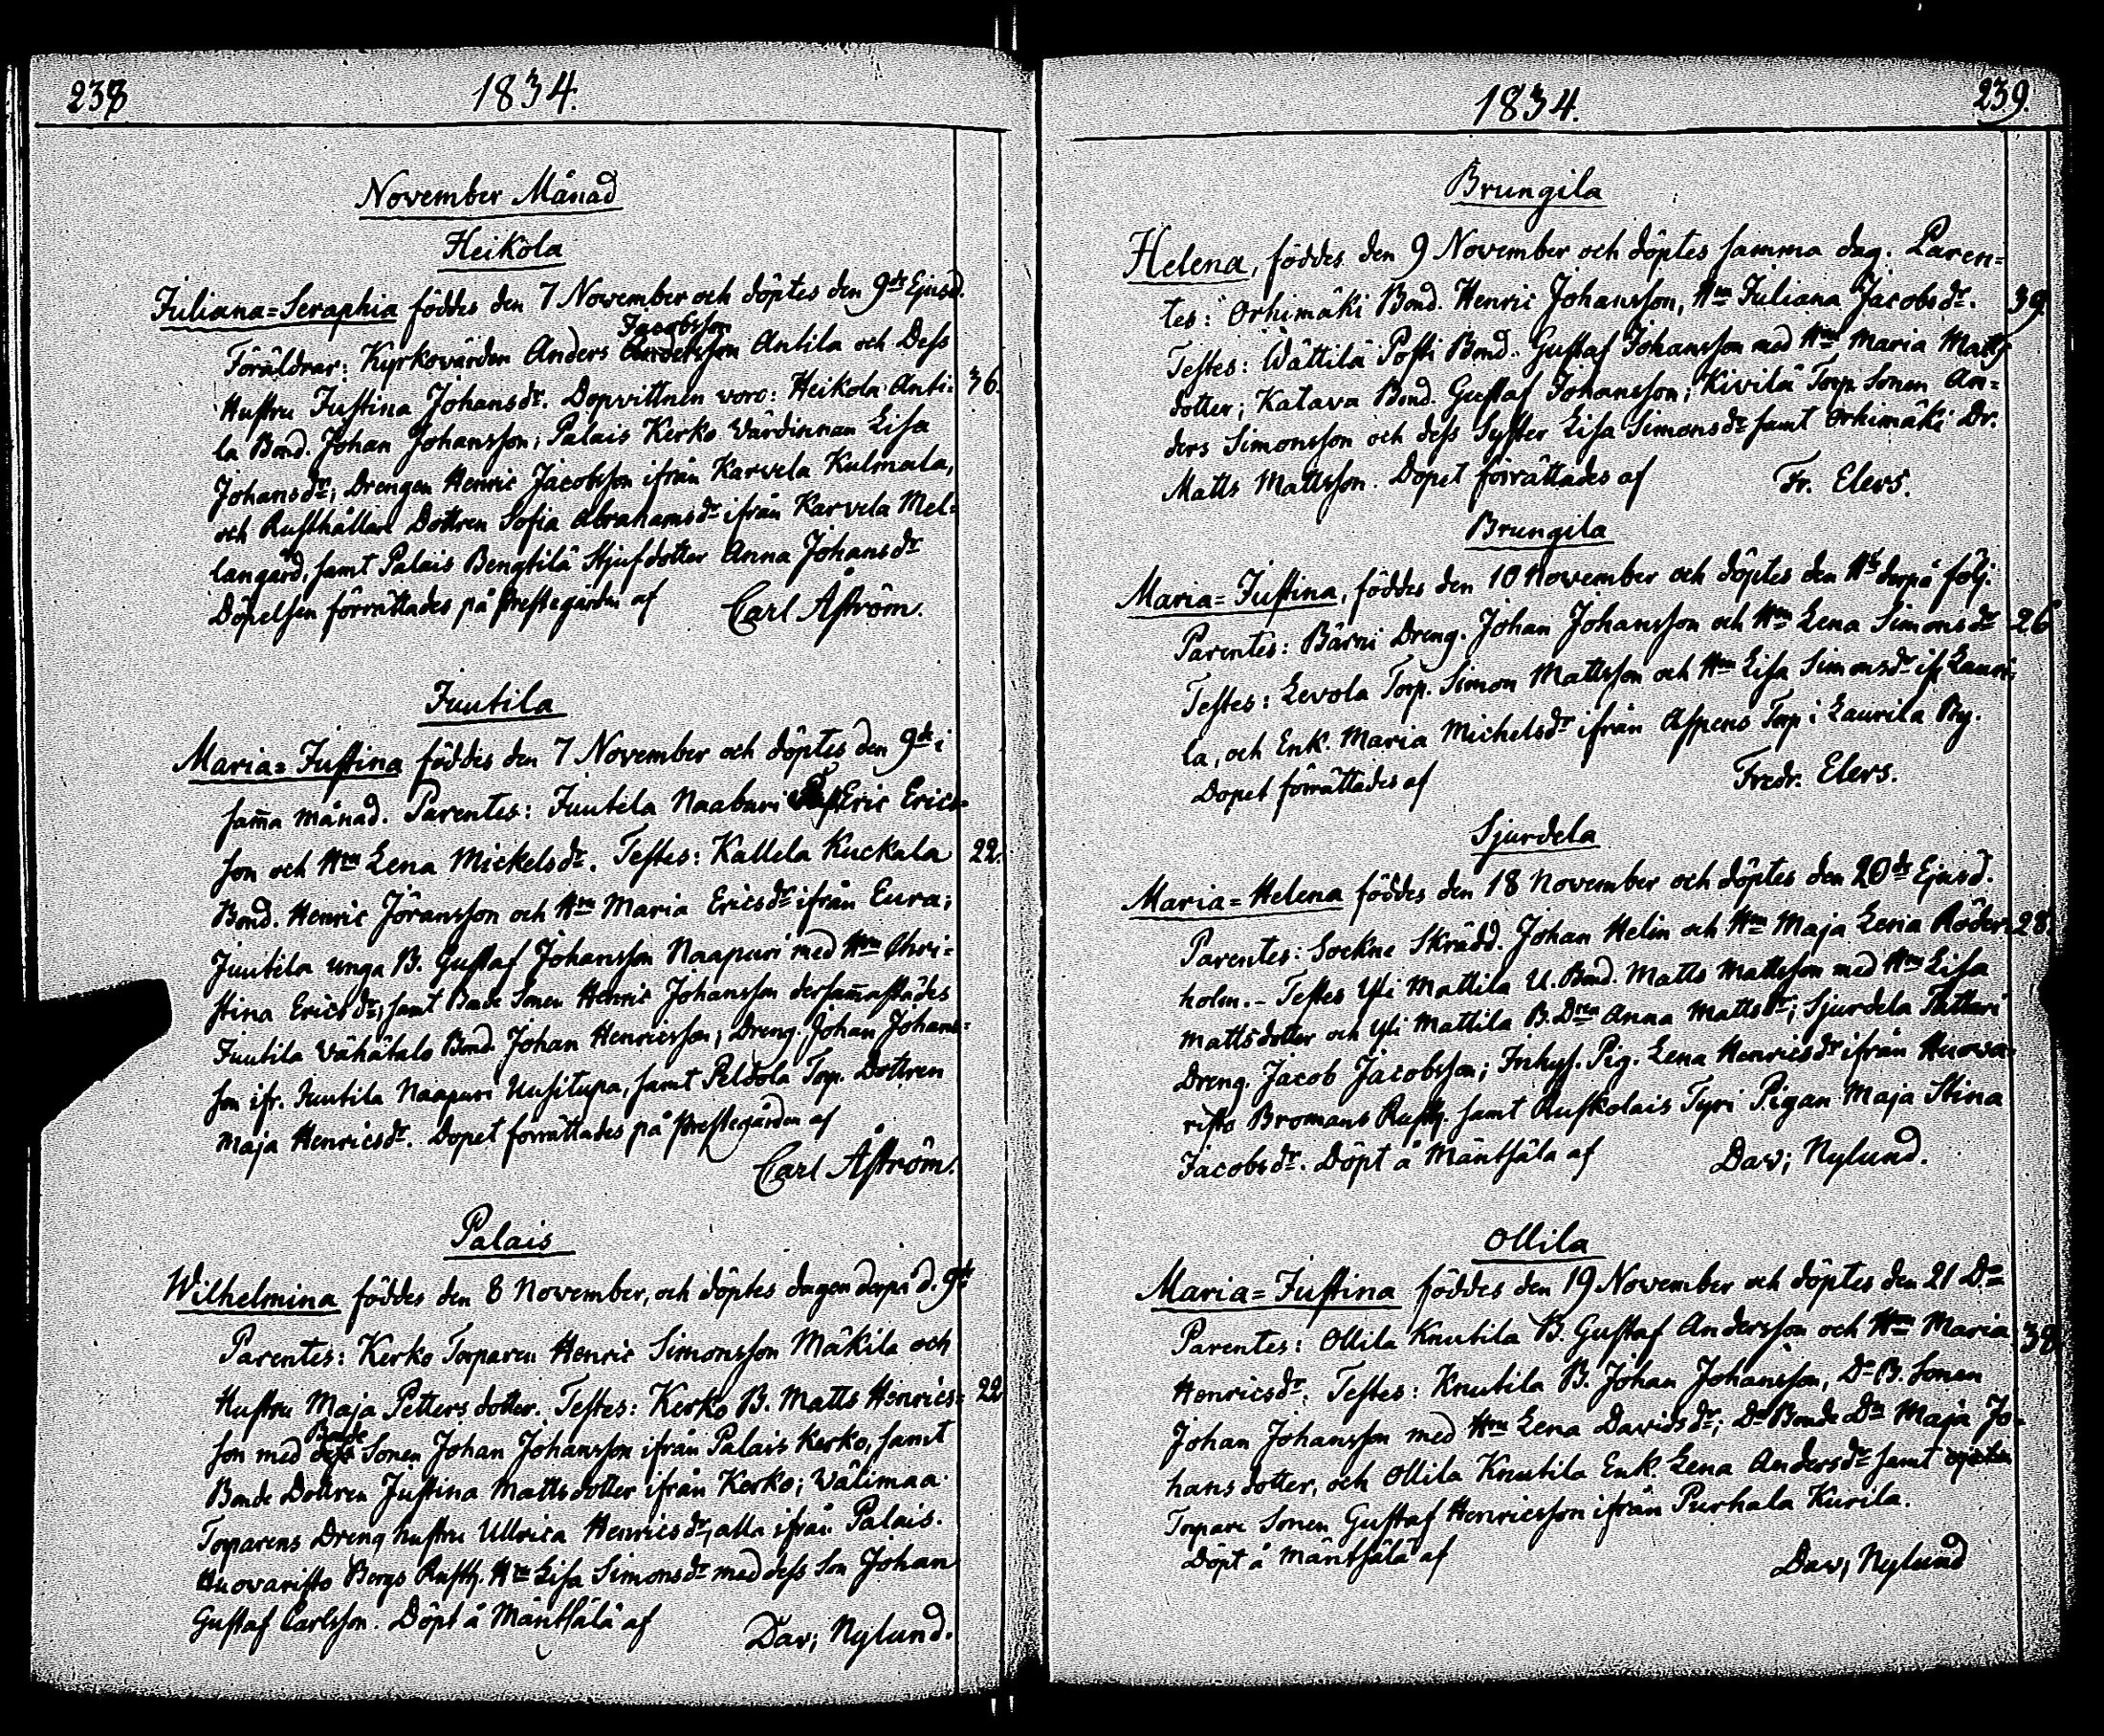 238
1834.
November Månad
Heikola
Juliana=Seraphia föddes den 7 November och döptes den 9de Ejusd.
Jacobsson
Föräldrar: Kyrkovärden Anders Andersson Antila och Dess
Hustru Justina Johansdr. Dopvittnen voro: Heikola Anti= 36.
la Bond. Johan Johansson; Palais Kerko Värdinnan Lisa
Johansdr; Drengen Henric Jacobsson ifrån Karvela Kulmala,
och Rusthållare Dottren Sofia Abrahamsdr ifrån Karvela Mel=
langård, samt Palais Bengtilä Stjufdotter Anna Johansdr
Döpelsen förrättades på Prestegården af Carl Åström.
Juutila
Maria=Justina föddes den 7 November och döptes den 9de i
samma månad. Parentes: Juutila Naaburi Eric Erics=
son och Hun Lena Mickelsdr. Testes: Kallela Kuckala 22.
Bond. Henric Jöransson och Hun Maria Ericsdr ifrån Eura;
Juutila unga B. Gustaf Johansson Naapuri med Hun Chri=
stina Ericsdr; samt Bonde Sonen Henric Johansson dersammastädes
Juutila Vähätalo Bond. Johan Henricsson; Dreng. Johan Johans=
son ifr. Juutila Naapuri Uusitupa, samt Peldola Torp. Dottren
Maja Henricsdr. Dopet förrättades på Prestegården af
Carl Åström.
Palais
Wilhelmina föddes den 8 November, och döptes dagen derpå d. 9de
Parentes: Kerko Torparen Henric Simonsson Mäkila och
Hustru Maja Petters dotter. Testes: Kerko B. Matts Henrics= 22
Bonde
son med dess Sonen Johan Johansson ifrån Palais Kerko, samt
Bonde Dottren Justina Mattsdotter ifrån Kerko; Välimaa
Torparens Dreng hustru Ullrica Henricsdr, alla ifrån Palais.
Huovaristo Bergs Rusth. Hu Lisa Simonsdr med dess Son Johan
Gustaf Carlsson. Döpt å Mäntsälä af Dav; Nylund.
1834.
239.
Brungila
Helena, föddes den 9 November och döptes samma dag. Paren=
tes: Orhimäki Bond. Henric Johansson, Hun Juliana Jacobsdr. 39.
Testes: Wättilä Posti Bond. Gustaf Johansson med Hun Maria Matts
dotter; Katava Bond. Gustaf Johansson; Kivilä Torp. Sonen An=
ders Simonsson och dess Syster Lisa Simonsdr samt Orhimäki Dr.
Matts Mattsson. Dopet förrättades af Fr. Elers.
Brungila
Maria=Justina, föddes den 10 November och döptes den 11te derpå följ.
Parentes: Bärni Dreng. Johan Johansson och Hun Lena Simonsdr 26
Testes: Levola Torp. Simon Mattsson och Hun Lisa Simonsdr if. Lauri=
la, och Enk. Maria Michelsdr ifrån Aspens Torp i Laurila By.
Dopet förrättades af Fredr. Elers.
Sjurdela
Maria=Helena föddes den 18 November och döptes den 20de Ejusd.
Parentes: Sockne Skrädd. Johan Helin och Hun Maja Lena Röder= 28.
holm. - Testes Yli Mattila U. Bond. Matts Mattsson med Hun Lisa
Mattsdotter och Yli Mattila B. Dren Anna Mattsdr; Sjurdela
Dreng. Jacob Jacobsson; Inhys. Pig. Lena Henricsdr ifrån Huova=
risto Bromans Rusth. samt Ruskolais Tyri Pigan Maja Stina
Jacobsdr. Döpt å Mäntsäla af Dav; Nylund.
Ollila
Maria=Justina föddes den 19 November och döptes den 21 Do
Parentes: Ollila Knutila B. Gustaf Andersson och Hun Maria 38
Henricsdr. Testes: Knutila B. Johan Johansson, Do B. Sonen
Johan Johansson med Hun Lena Davidsdr; Do Bonde Dn Maja Jo=
hans dotter, och Ollila Knutila Enk. Lena Andersdr samt
Torpare Sonen Gustaf Henricsson ifrån Purhala Kurila.
Döpt å Mäntsälä af Dav; Nylund